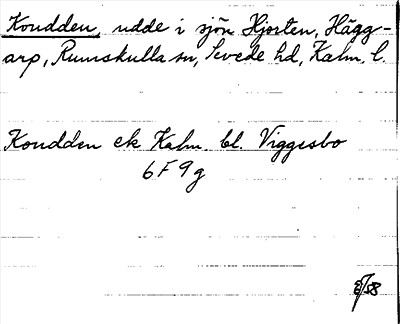 Koudden, udde i sjön Hjorten, Hägg-
arp, Rumskulla sn, Sevede hd, Kalm. l.
Koudden ek Kalm. bl. Viggesbo
6 F 9 g